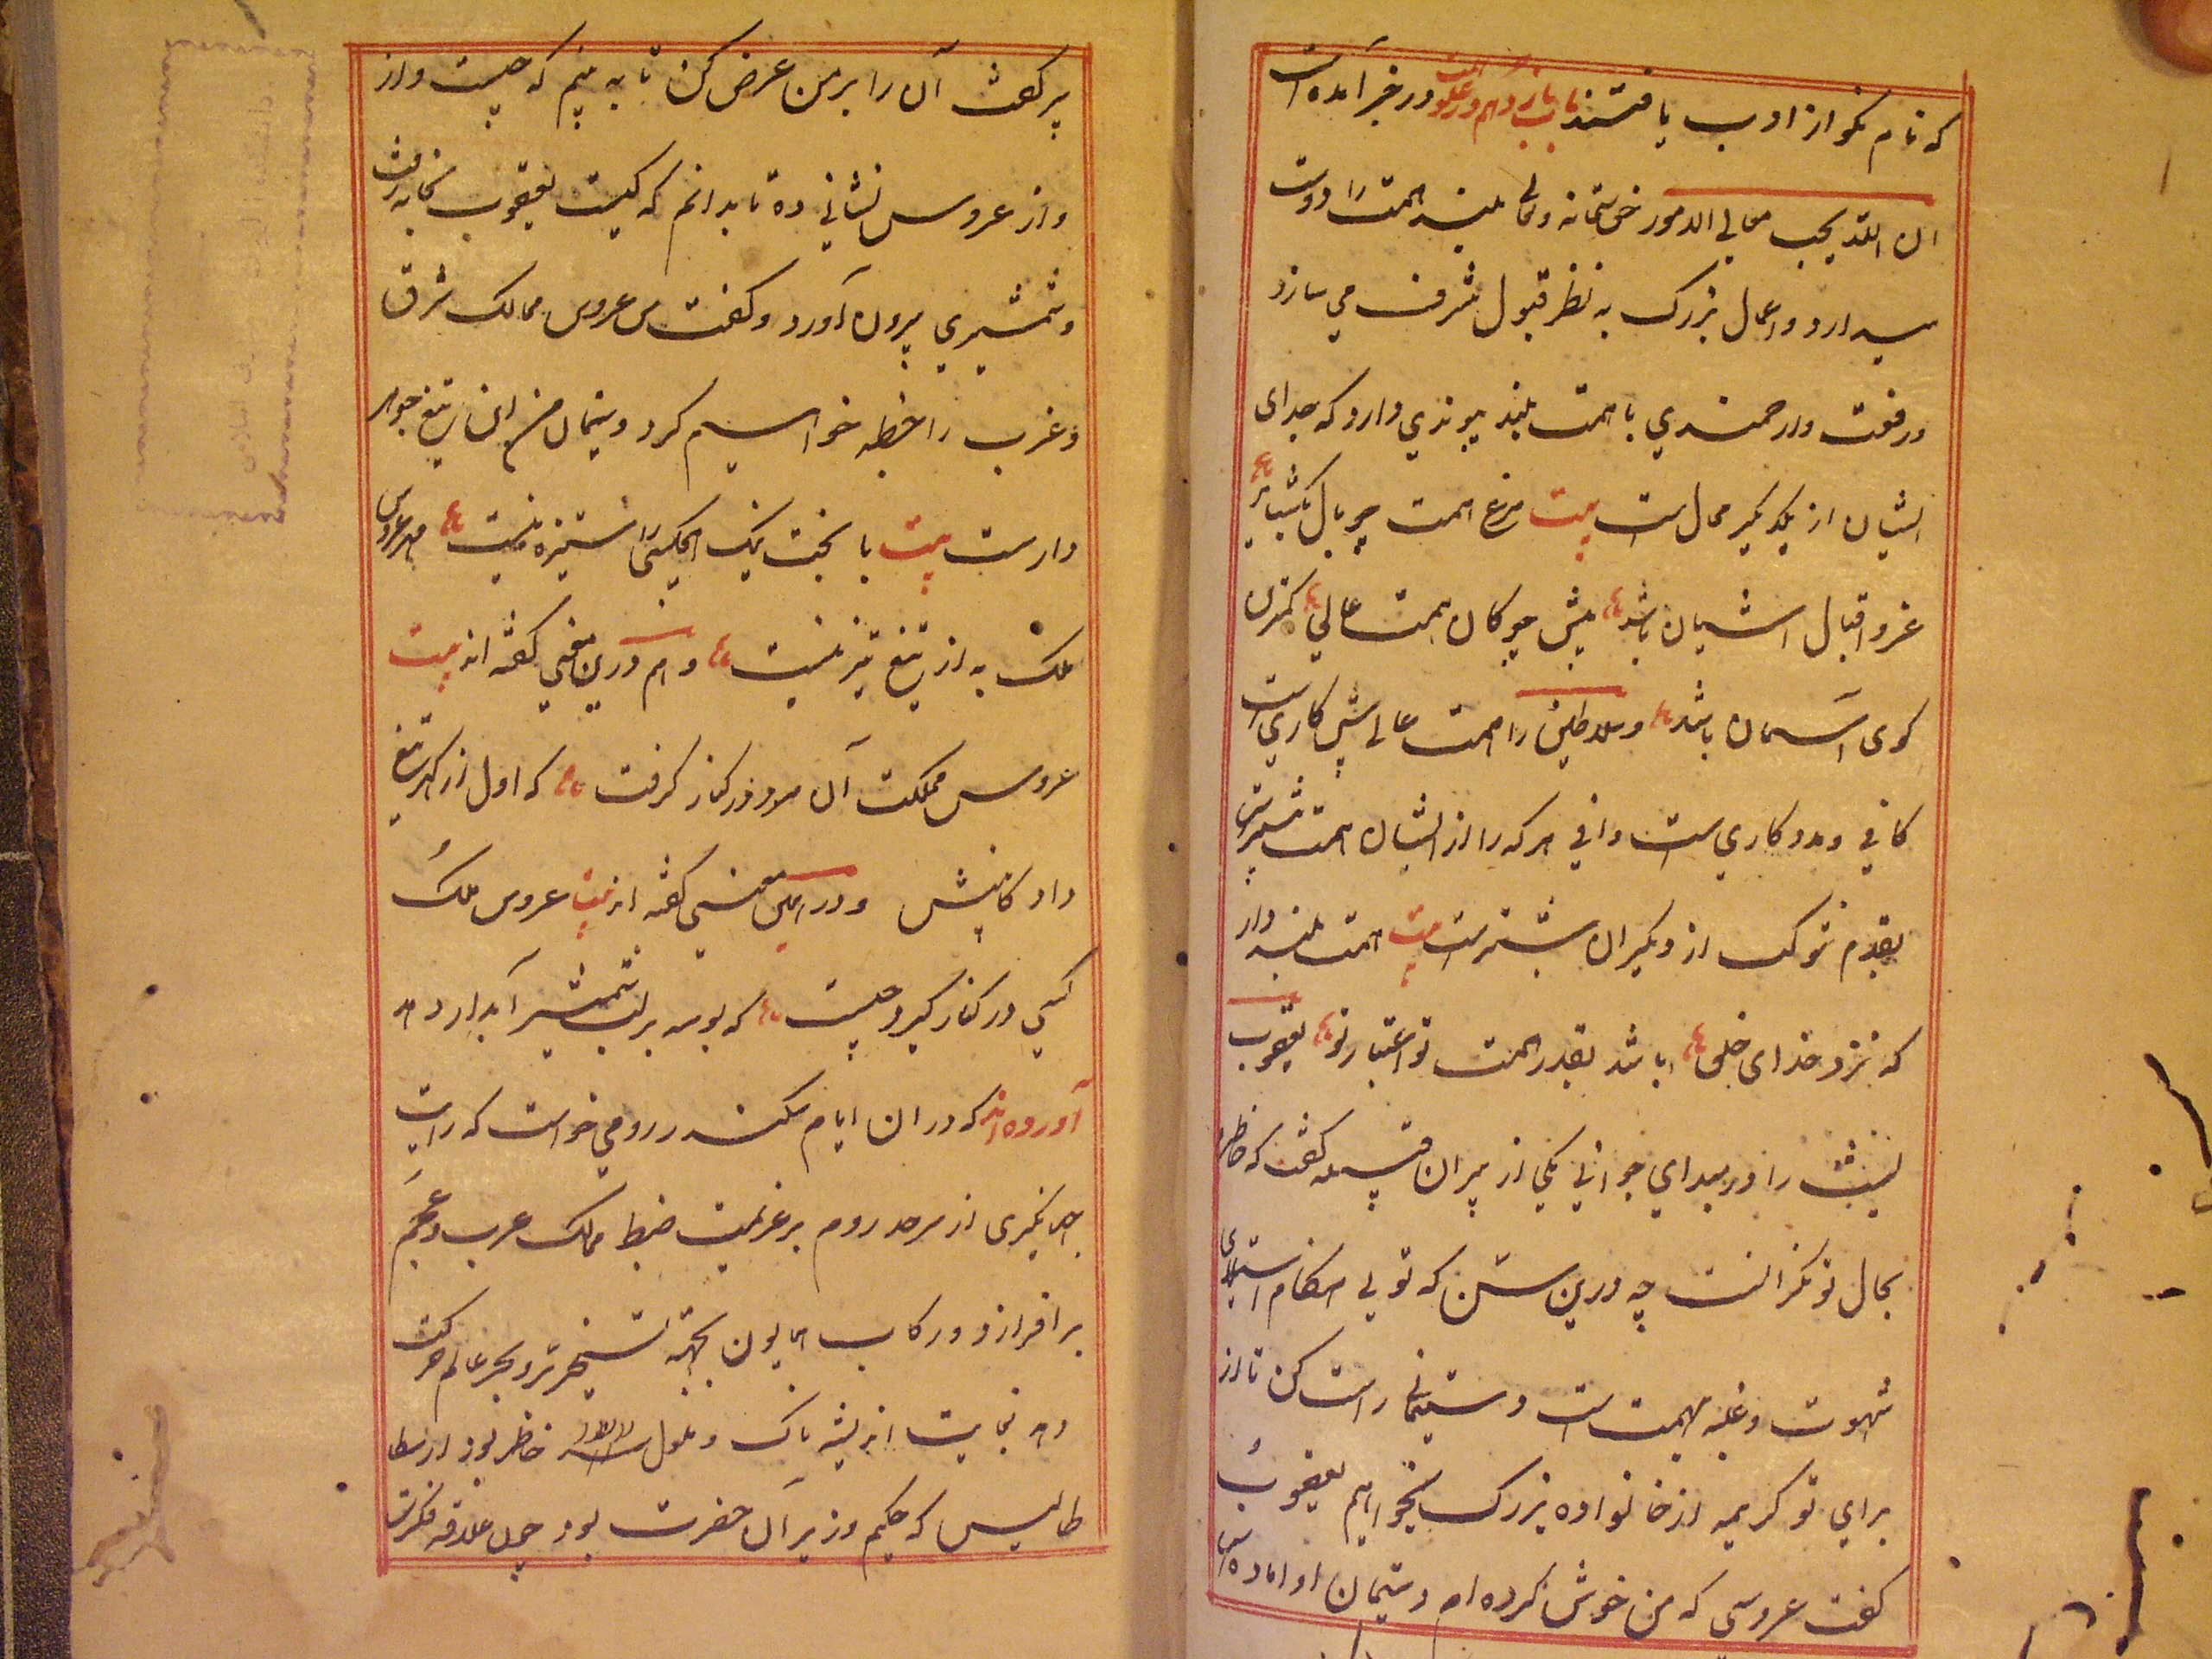 که نام نکو از ادب یافتند باب یازدهم در علو همت در خبر آمده است
ان الله یحب معالی الامور حق سبحانه و تعالی بلند همت را دوست
میدارد و اعمال بزرگ به نظر قبول مشرف می سازد
و رفعت و ارجمندی با همت بلند پیوندی دارد که جدای
ایشان از یکدیگر محال است بیت مرغ همت چو بال بگشاید
عز و اقبال آشیان باشد پیش چوکان همت عالی کمترین
کوی آسمان باشد و سلاطین را همت عالی پیش کاری است
کافی و مددکاری ست وافی هر که را از ایشان همت بیشترست
بقدم شوکت از دیگران بیشترست بیت همت بلند دار
که نزد خدای و خلق باشد بقدر همت تو اعتبار تو یعقوب
لیث را در مبدای جوانی یکی از پیران قبیله گفت که خاطرم
بحال تو نگرانست چه درین سن که توی هنگام استیلای
شهوت و غلبه بهیمیت است دستپیمانی راست کن تا از
برای تو کریمه از خانواده بزرگ بخواهیم یعقوب
گفت عروسی که من خوش کرده ام دستپیمان او آماده است
پیر گفت آن را بر من عرض کن تا به بینم که چیست و از
و از عروس نشانی ده تا بدانم که کیست یعقوب بخانه رفت
و شمشیری بیرون آورد و گفت من عروس ممالک شرق
و غرب را خطبه خواهم کرد و دستپیمان من این تیغ جوهر
دارست بیت با بخت نیک هیچکسی را ستیزه نیست مهر عروس
ملک به از تیغ تیز نیست و هم درین معنی گفته اند بیت
عروس مملکت آن مرد در کنار گرفت که اول از گهر تیغ
داد کابینش و در این معنی گفته اند بیت عروس ملک
کسی در کنار گیرد چست که بوسه بر لب شمشیر آبدار دهد
آورده اند که در ان ایام سکندر رومی خواست که رایت
جهانگیری از سرحد روم بر عزیمت ضبط ممالک عرب و عجم
بر افرازد و رکاب همایون بجهة تسخیر بر و بحر عالم حرکت
دهد بغایت اندیشه ناک و ملول خاطر بود ارسطا
طالیس که حکیم وزیر آن حضرت بود چون علاقه فکرت